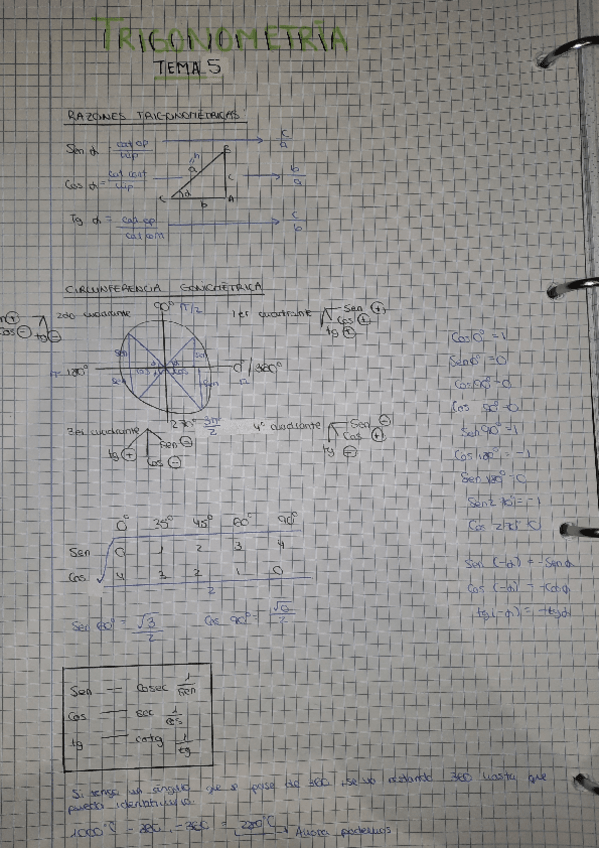 TRIGONOMETRÍA
TEMA 5
RAZONES TRIGONOMÉTRICAS
Sen α = cat op / hip → c/a
Cos α = cat cont / hip → b/a
Tg α = cat op / cat con → c/b
B
a
c
C
α
b
A
CIRCUNFERENCIA GONIOMÉTRICA
90° π/2
2do cuadrante
Cos ⊖
tg ⊖
1er cuadrante
Sen ⊕
Cos ⊕
tg ⊕
180°
0°/360°
270° 3π/2
3er cuadrante
tg ⊕
Cos ⊖
Sen ⊖
4º cuadrante
Sen ⊖
Cos ⊕
tg ⊖
Cos 0° = 1
Sen 0° = 0
Cos 90° = 0
Sen 90° = 1
Cos 180° = -1
Sen 180° = 0
Sen 270° = -1
Sen (-α) = -Sen α
Cos (-α) =
tg (-α) = -tg α
0° 45° 60° 90°
Sen 0 1 2 3 4
Cos 4 3 2 1 0
2
Sen 60° = √3/2
Cos 90° = √0/2
Sen — Cosec 1/sen
Cos — sec 1/cos
tg — cotg 1/tg
Si tengo un ángulo que se pasa de 360, le voy restando 360 hasta que
pueda identificarlo
1000° - 360 - 360 = 280° → Ahora podemos